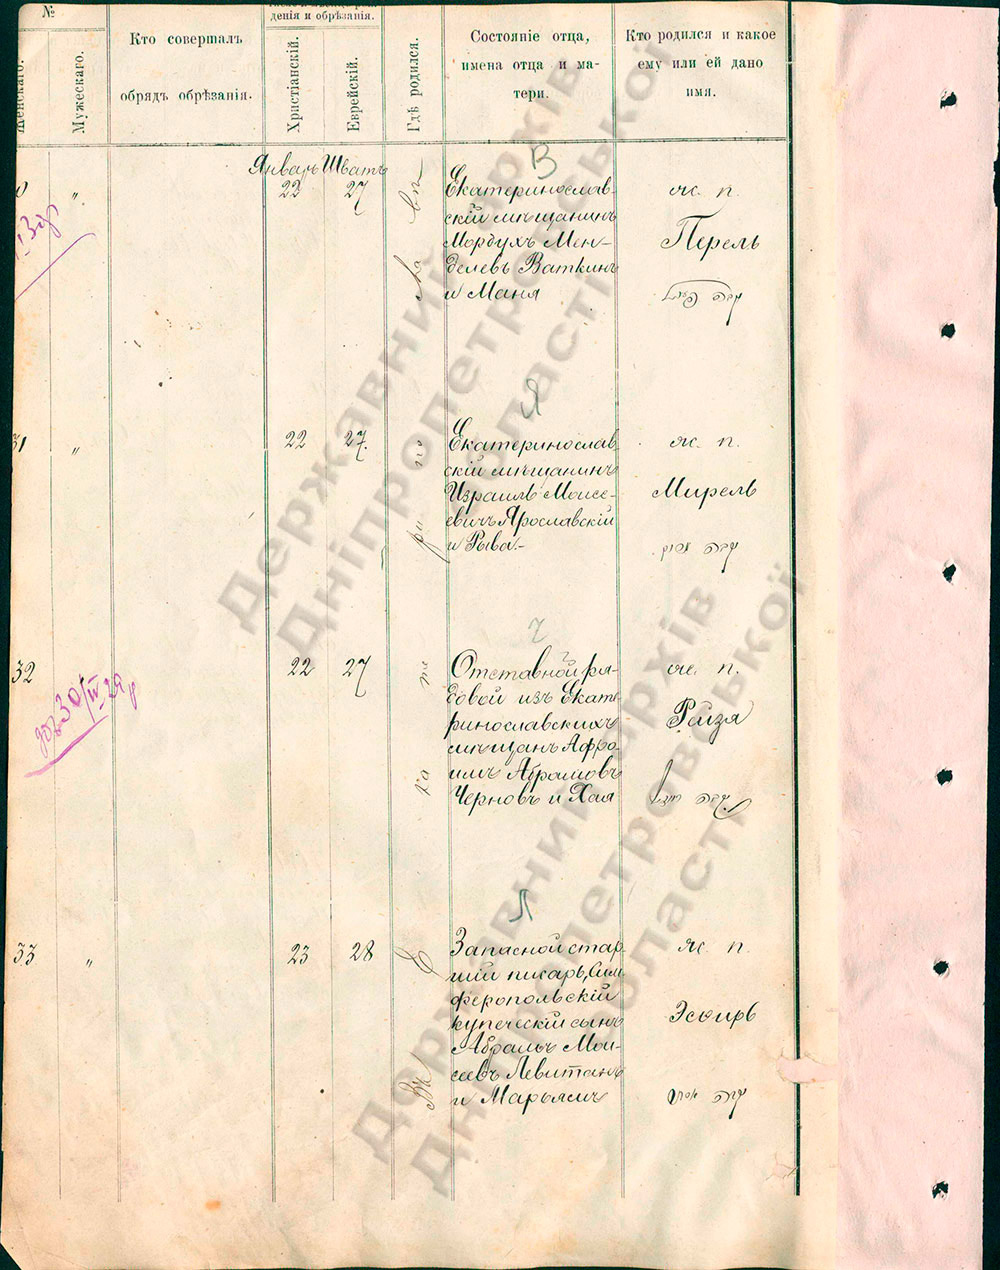 №
дения и обрѣзанія.
Женскаго.
Мужескаго.
Кто совершалъ
обрядъ обрѣзанія.
Христіанскій.
Еврейскій.
Гдѣ родился.
Состояніе отца,
имена отца и ма-
тери.
Кто родился и какое
ему или ей дано
имя.
Январь Шватъ
В
0 „ 22 27
Екатеринослав-
скій мѣщанинъ
Мордухъ Мен-
делевъ Ваткинъ
и Маня
ж. п.
Перель
Я
31 „ 22 27
Екатеринослав-
скій мѣщанинъ
Израиль Моисе-
евичъ Ярославскій
и Рыва
ж. п.
Мирель
Ч
32 22 27
Отставной ря-
довой изъ Екате-
ринославскихъ
мѣщанъ Афро-
имъ Абрамовъ
Черновъ и Хая
ж. п.
Рейзя
Л
33 „ 23 28
Запасной стар-
шій писарь, Сим-
феропольскій
купеческій сынъ
Абрамъ Мои-
сеевъ Левитанъ
и Марьямъ
ж. п.
Эсѳирь
Державний архів
Дніпропетровської
області
Державний архів
Дніпропетровської
області